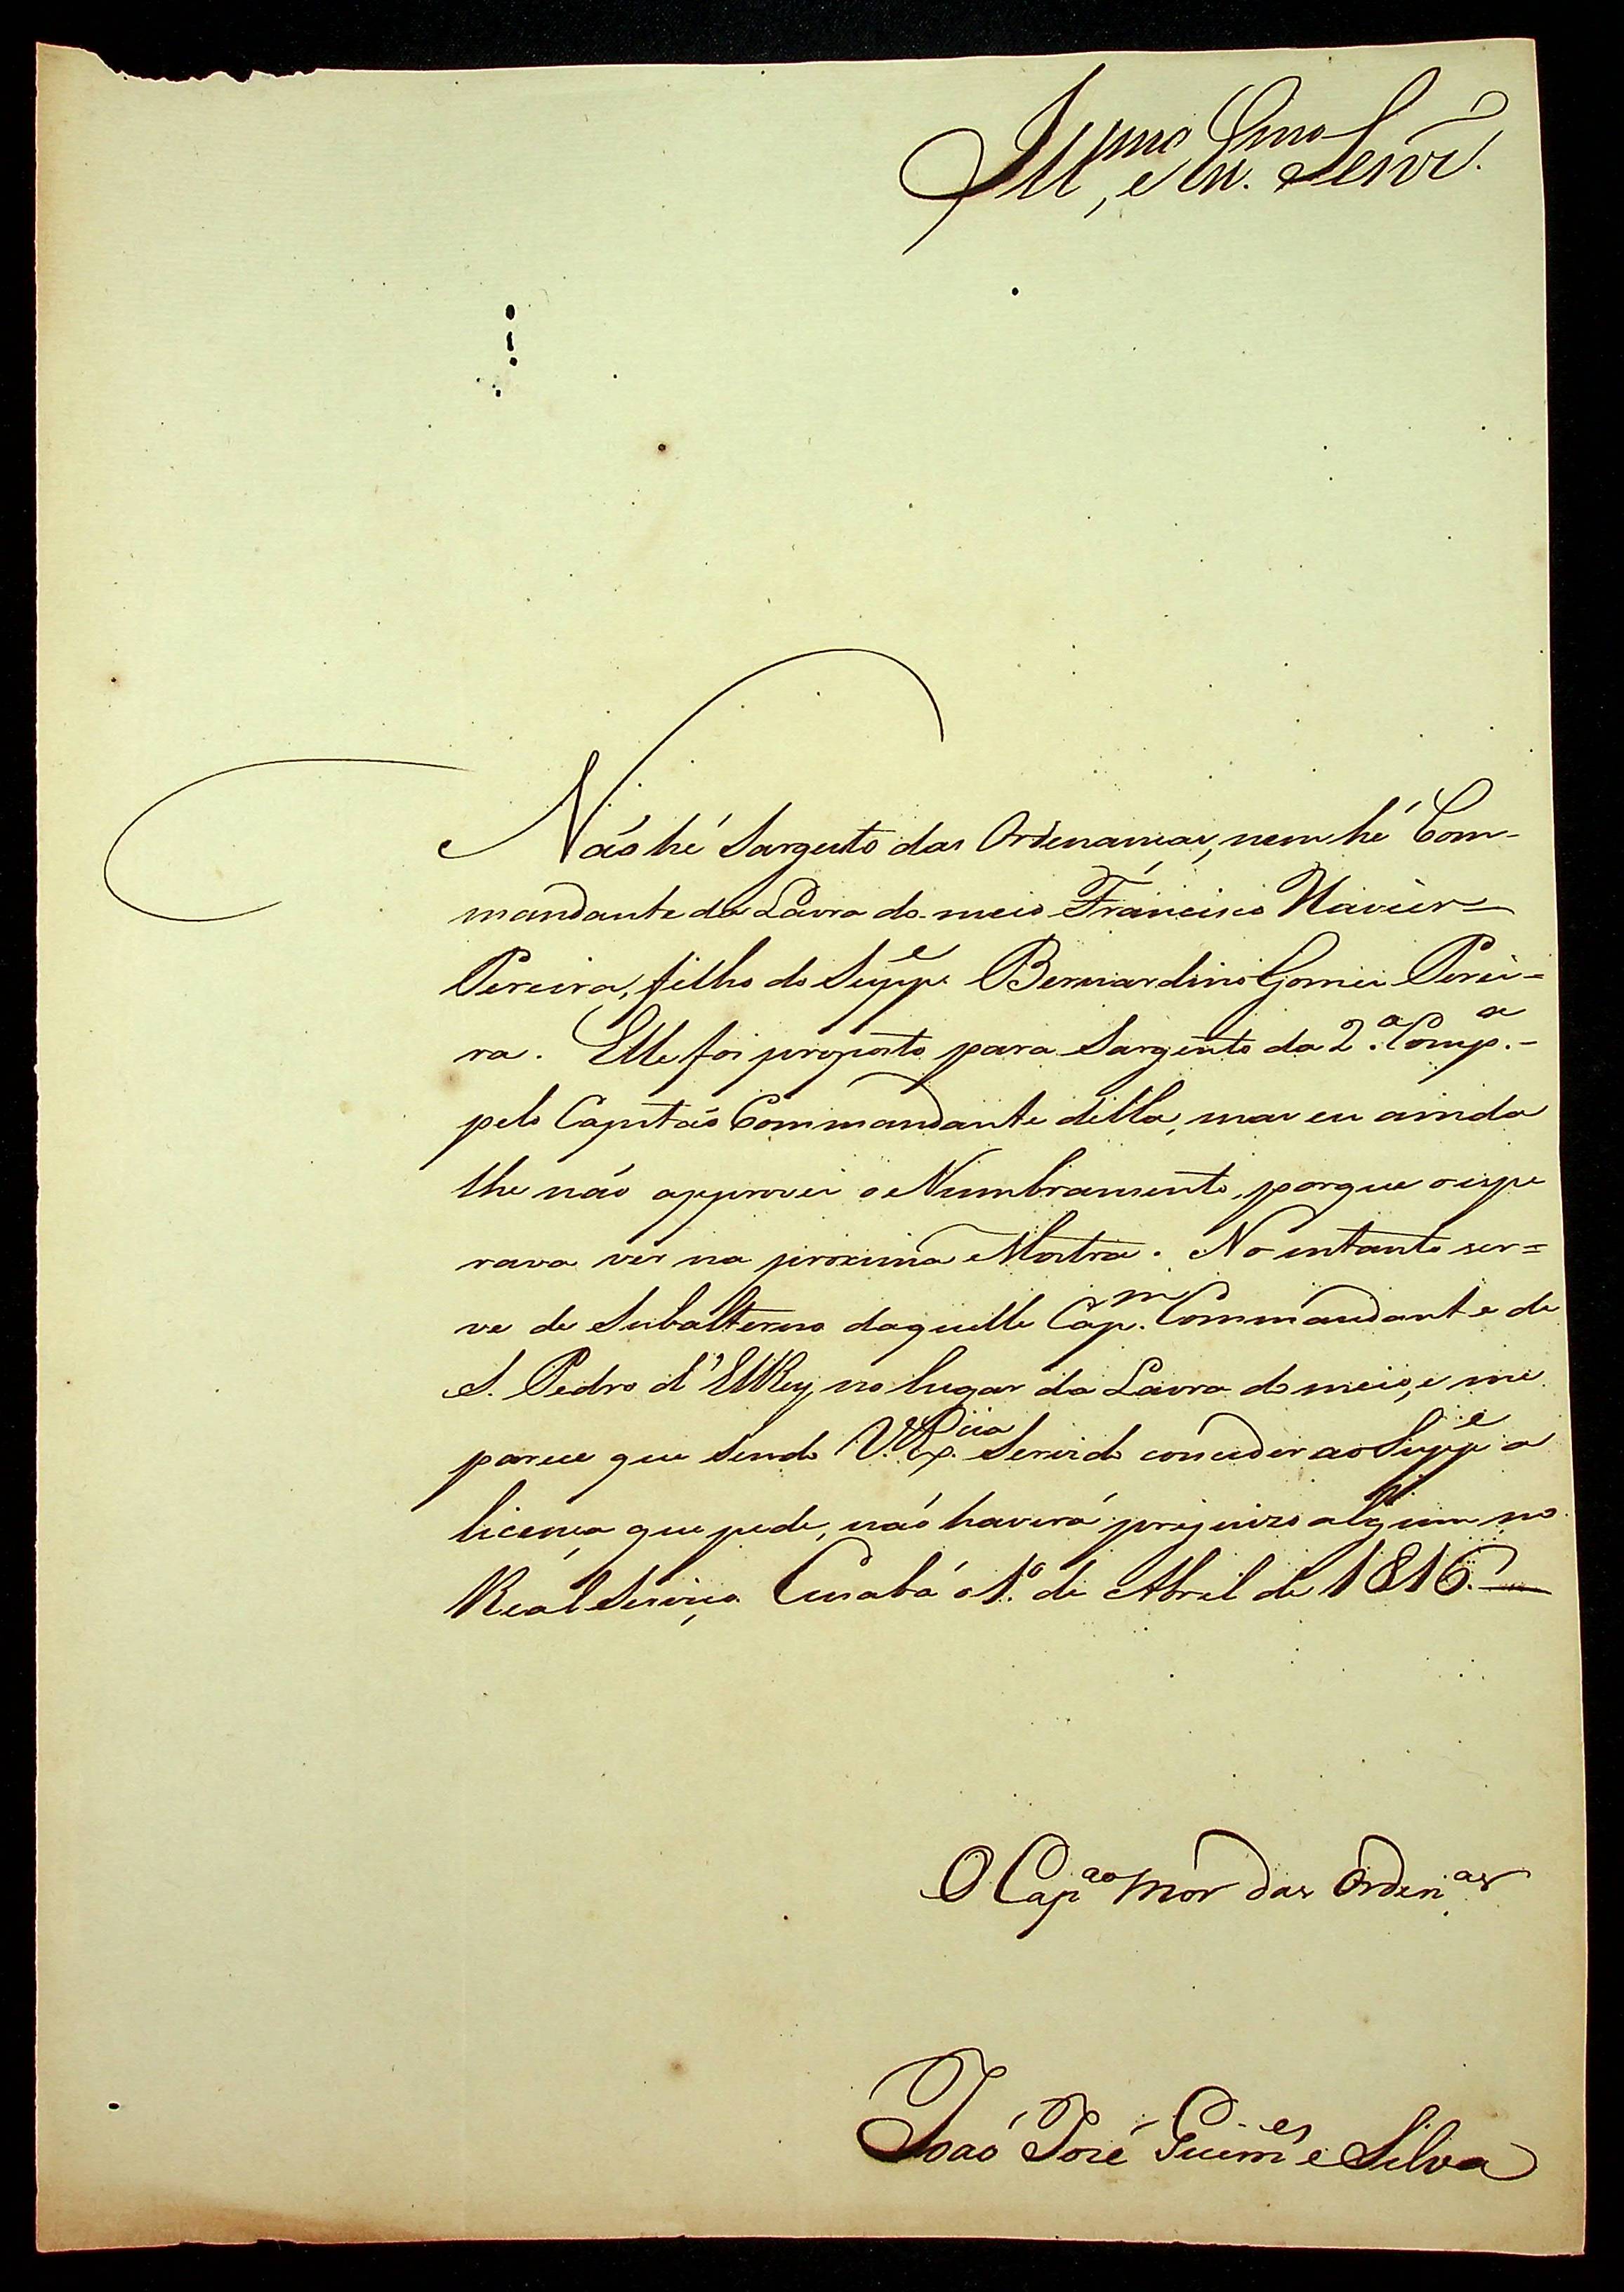 Ill.mo, e Ex.mo Senr.
Náo hé Sargento das Ordenanças, nem hé Com-
mandante da Lavra do meio Francisco Xavier=
Pereira, filho do Supp.e Bernardino Gomes Perei=
ra. Elle foi proposto para Sargento da 2.a Comp.a-
pelo Capitáo Commandante della, mas eu ainda
lhe náo approvei o Numbramento, porque o espe
rava ver na proxima Mostra. No entanto ser=
ve de Subalterno daquelle Cap.m Commandante de
S. Pedro d'ElRey no lugar da Lavra do meio, e me
parece que sendo V. Ex.cia Servido conceder ao Supp.e a
licença que pede, náo haverá prejuizo algum no
Real Serviço. Cuiabá o 1.o de Abril de 1816.
O Cap.ao Mór das Orden.as
Joaó José Guim.es e Silva